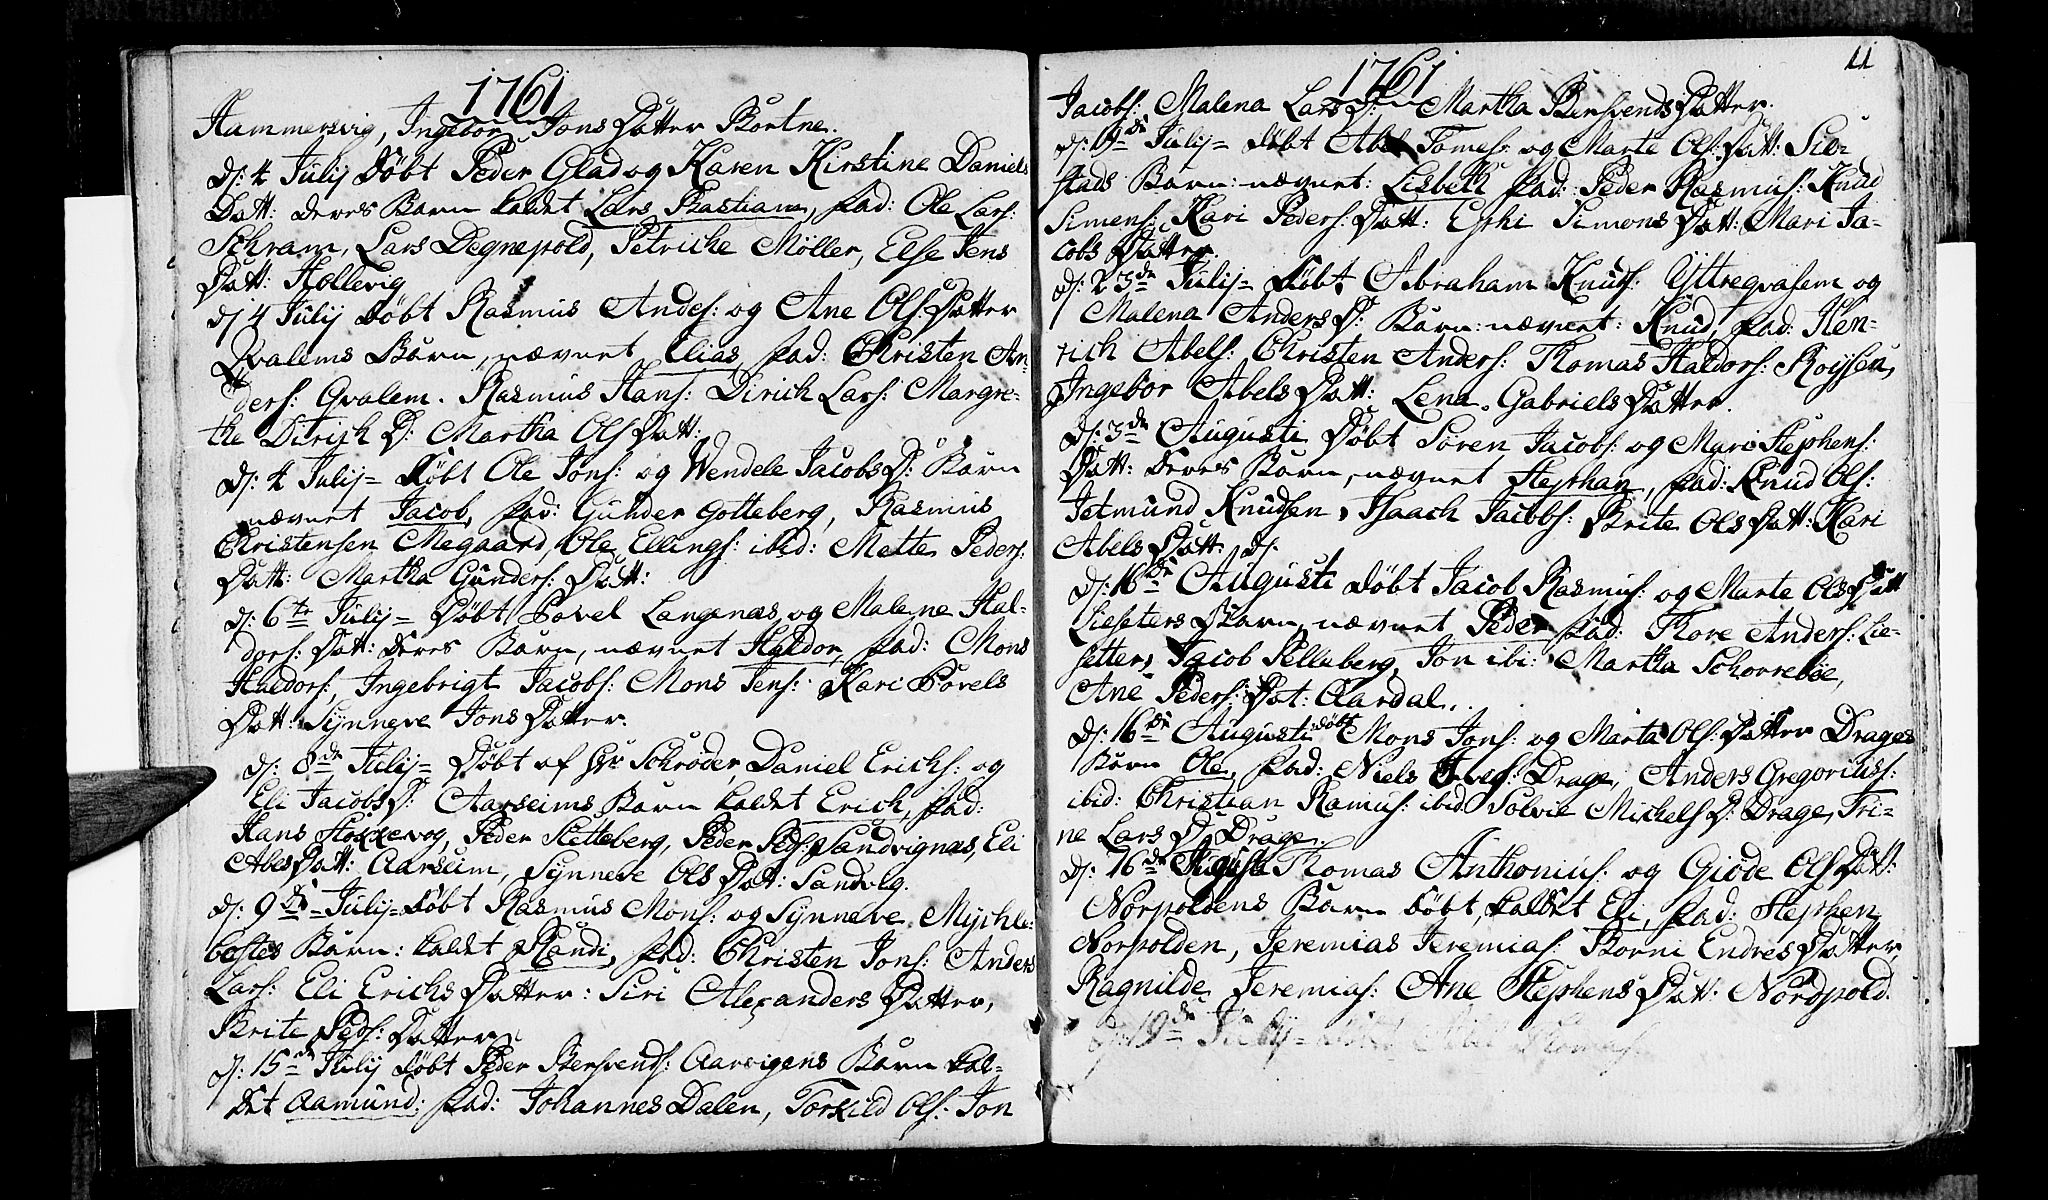 1761
Hammersvig, Ingebor Jons Datter Bortne.
d: 4 Julij Døbt Peder Glad og Karen Kirstine Daniels
Datt: deres Barn kaldet Lars Bastian, fad: Ole Lars:
Schram, Lars Degnepold, Petriche Møller, Else Jens
Datt: Hollevig
d: 4 Julij Døbt Rasmus Andes: og Ane Ols: Datter
Qvalems Barn, nævnet Elias, fad: Christen An-
ders: Qvalem. Rasmus Hans: Dirich Lars: Margre-
the Dirich D: Martha Ols Datt:
d: 4 Julij= Døbt Ole Jons: og Wendele Jacobs D: Barn
nævnet Jacob, fad: Gunder Gotteberg, Rasmus
Christensen Megaard, Ole Ellings: ibid: Mette Peders:
Datt: Martha Gunders: Datt:
d: 6te Julij= Døbt Povel Langenæs og Malene Hal-
dors: Dat: deres Barn, nævnet Haldor, fad: Mons
Haldors:, Ingebrigt Jacobs: Mons Jens: Kari Povels
Datt: Synneve Jons Datter.
d: 8de Julij= Døbt af Hr Schrøder, Daniel Erichs: og
Eli Jacobs D: Aarseims Barn kaldet Erich, fad:
Hans, Peder Setteberg, Peder Ped: Sandvignæs, Eli
Abels Datt: Aarseim, Synneve Ols Dat: Sandvig.
d: 9de Julij= Døbt Rasmus Mons: og Synneve Mychle-
bostes Barn: kaldet Randi, fad: Christen Jons: Anders
Lars: Eli Erichs Datter: Siri Alexanders Datter,
Brite Peds: Datter
d: 15de Julij Døbt Peder Bersvends: Aarvigens Barn kal-
det Aamund: fad: Johannes Dalen, Torkild Ols: Jon
1761
11
Jacobs: Malena Lars D: Martha Bersvends Datter.
d: 19de Julij= døbt Abel Tomes: og Marte Ols: Datt: Sib-
stads Barn: nævnet: Lisbeth fad: Peder Rasmus: Knud
Simens: Kari Peders: Datt: Simons Datt: Mari Ja-
cobs Datter.
d: 23de Julij= Døbt Abraham Knuds: Yttreqvalem og
Malena Anders D: Barn: nævnet: Knud, fad: Hen-
rich Abels: Christen Anders: Thomas Haldors: Røysen,
Ingebor Abels Datt: Lena Gabriels Datter.
d: 3de Augusti Døbt Søren Jacobs: og Mari Stephens:
Datt: deres Barn, nævnet Stephan, fad: Knud Ols:
Jetmund Knudsen, Isaach Jacobs: Brite Ols Datt: Kari
Abels Datt:
d: 16de Augusti døbt Jacob Rasmus: og Marte Ols Datt
Liesæters Barn, nævnet Peder fad: Thore Anders: Lie-
setter, Jacob Selleberg, Jon ibi: Martha Schorrebøe,
Ane Peders: Dat: Aardal.
d: 16de Augusti døbt Mons Jons: og Marta Ols: Datter Drages
Barn Ole, fad: Niels Ivers: Drage, Anders Gregorius:
ibid: Christian Ramus: ibid Solvie Michels D: Drage, Tri-
ne Lars D: Drage.
d: 16de Augusti Thomas Anthonius: og Giøde Ols Datt:
Norpoldens Barn døbt, kaldet Eli, fad: Stephen
Norpolden, Jeremias Jeremias: Borni Endres Datter,
Ragnilde Jeremias: Ane Stephens Datt: Nordpold.
d: 19de Julij= døbt Abel Thomas